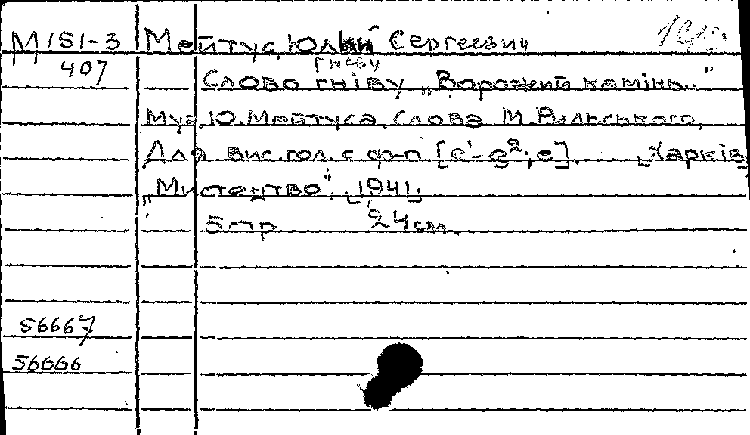 М 151-3 Мейтус, Юлий Сергеевич
407 гневу
Слово гніву „Ворожий камінь."
Муз. Ю. Мейтуса, слова М. Рильського,
Для вис. гол. с ф-п [c'-g²; e]. [Харків]
„Мистецтво" [1941]
5 стр 24 см.
56667
56666